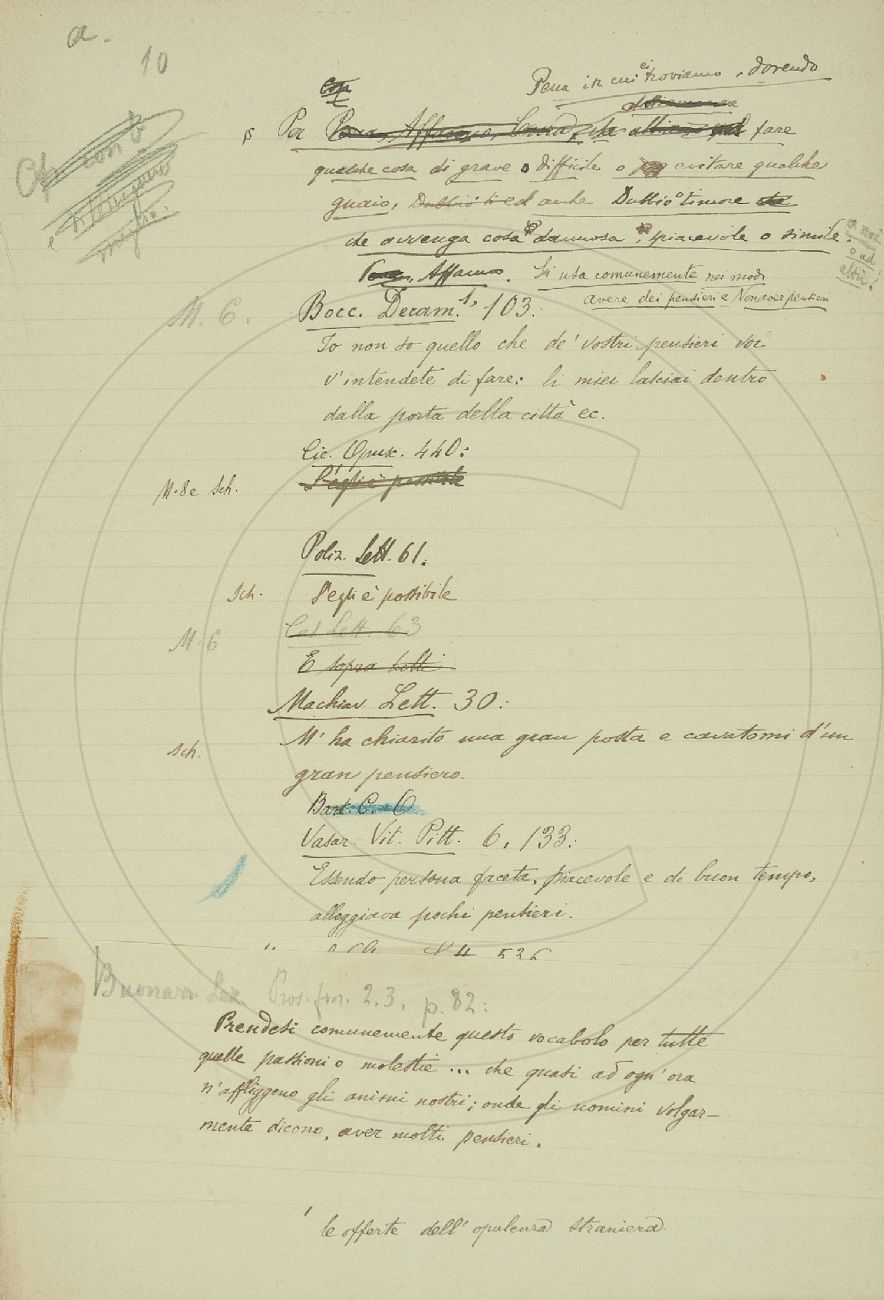 a.
10
Pena in cui ci troviamo, dovendo
§ Per Pena, Affanno, fare
qualche cosa di grave o difficile o evitare qualche
guaio, ed anche Dubbio o timore
che avvenga cosa dannosa, spiacevole o simile.
a noi
o ad
altri.
Affanno. Si usa comunemente nei modi
avere dei pensieri e Non aver pensieri
M. 6. Bocc. Decam. 1, 103:
Io non so quello che de' vostri pensieri voi
v'intendete di fare; li miei lasciai dentro
dalla porta della città ec.
Cic. Opusc. 440:
M. 8 e Sch. S'egli è possibile
Poliz. Lett. 61:
Sch. S'egli è possibile
M. 6 Lett. 63
E sopra
Machiav. Lett. 30:
Sch. M'ha chiarito una gran posta e cavatomi d'un
gran pensiero.
Bart. C.
Vasar. Vit. Pitt. 6, 133:
Essendo persona faceta, piacevole e di buon tempo,
alloggiava pochi pensieri.
Buonarr. Lez. Pros. fior. 2. 3. p. 82:
Prendesi comunemente questo vocabolo per tutte
quelle passioni o molestie ... che quasi ad ogn'ora
n'affliggono gli animi nostri; onde gli uomini volgar-
mente dicono, aver molti pensieri.
le offerte dell'opulenza straniera